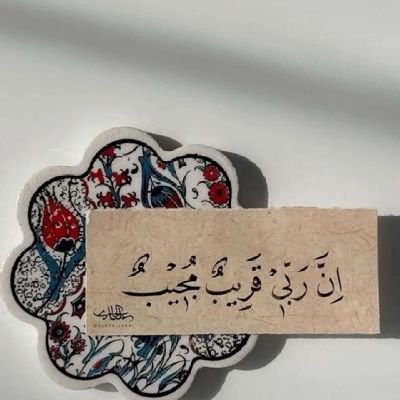 اِنَّ رَبِّىْ قَرِيبٌ مُجِيْبٌ